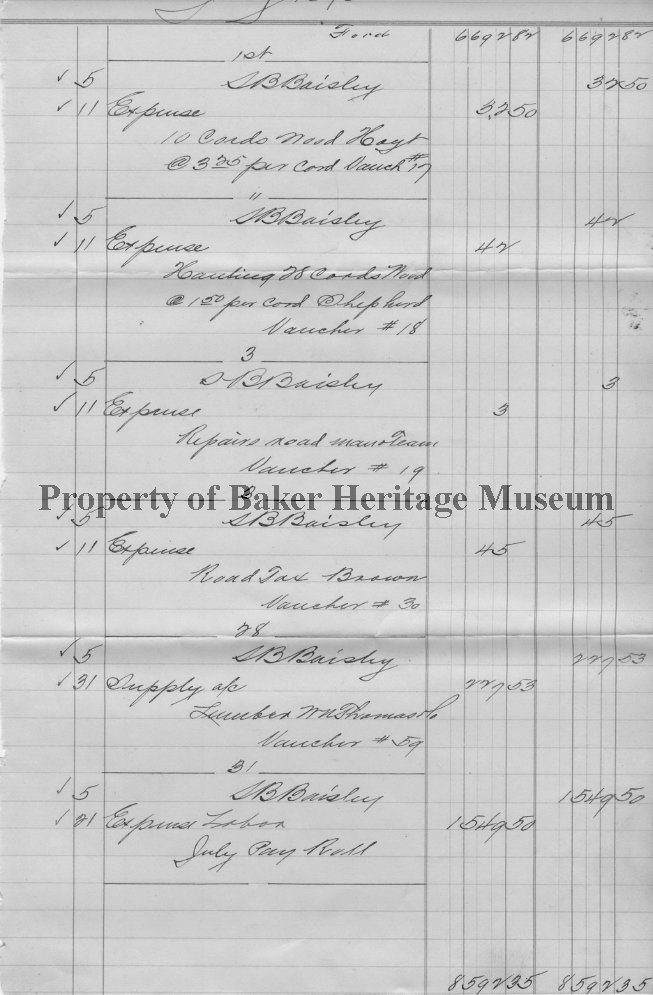 Ford 6692 82 6692 82
1st
✓ 5 S B Baisley 32 50
✓ 11 Expense 32 50
10 Cords Wood Hoyt
@ 3 25 per cord Vauch #17
"
✓ 5 S B Baisley 42
✓ 11 Expense 42
Hauling 28 Cords Wood
@ 1 50 per cord Shepherd
Vaucher # 18
3
✓ 5 S B Baisley 3
✓ 11 Expense 3
Repairs road man & Team
Vaucher # 19
3
Property of Baker Heritage Museum
✓ 5 S B Baisley 45
✓ 11 Expense 45
Road Tax Brown
Vaucher # 30
28
✓ 5 S B Baisley 227 53
✓ 31 Supply a/c 227 53
Lumber Wm Thomas & Co
Vaucher # 59
31
✓ 5 S B Baisley 1549 50
✓ 21 Expense Labor 1549 50
July Pay Roll
8592 35 8592 35